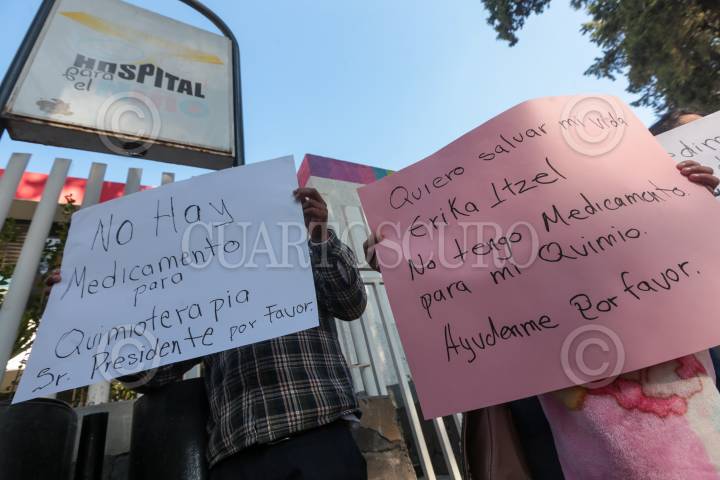 HOSPITAL
para
el
No Hay
Medicamento
para
Quimioterapia
Sr. Presidente por Favor.
Quiero salvar mi vida
Erika Itzel
No tengo Medicamento
para mi Quimio.
Ayudenme Porfavor.
CUARTOSCURO